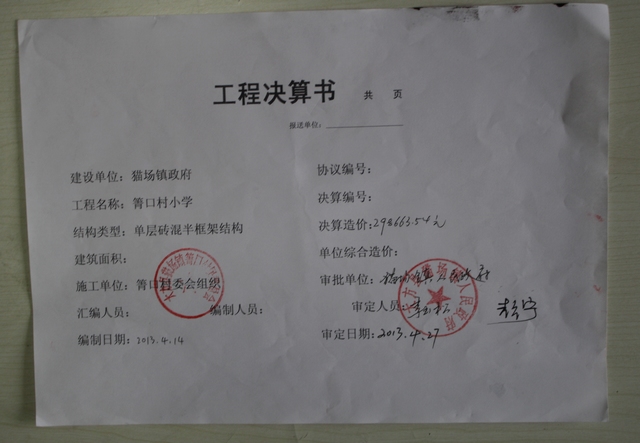 工程决算书 共 页
报送单位：
建设单位：猫场镇政府
工程名称：箐口村小学
结构类型：单层砖混半框架结构
建筑面积：
施工单位：箐口村委会组织
汇编人员： 编制人员：
编制日期：2013.4.14
协议编号：
决算编号：
决算造价：298663.54元
单位综合造价：
审批单位：猫场镇人民政府
审定人员：
审定日期：2013.4.27